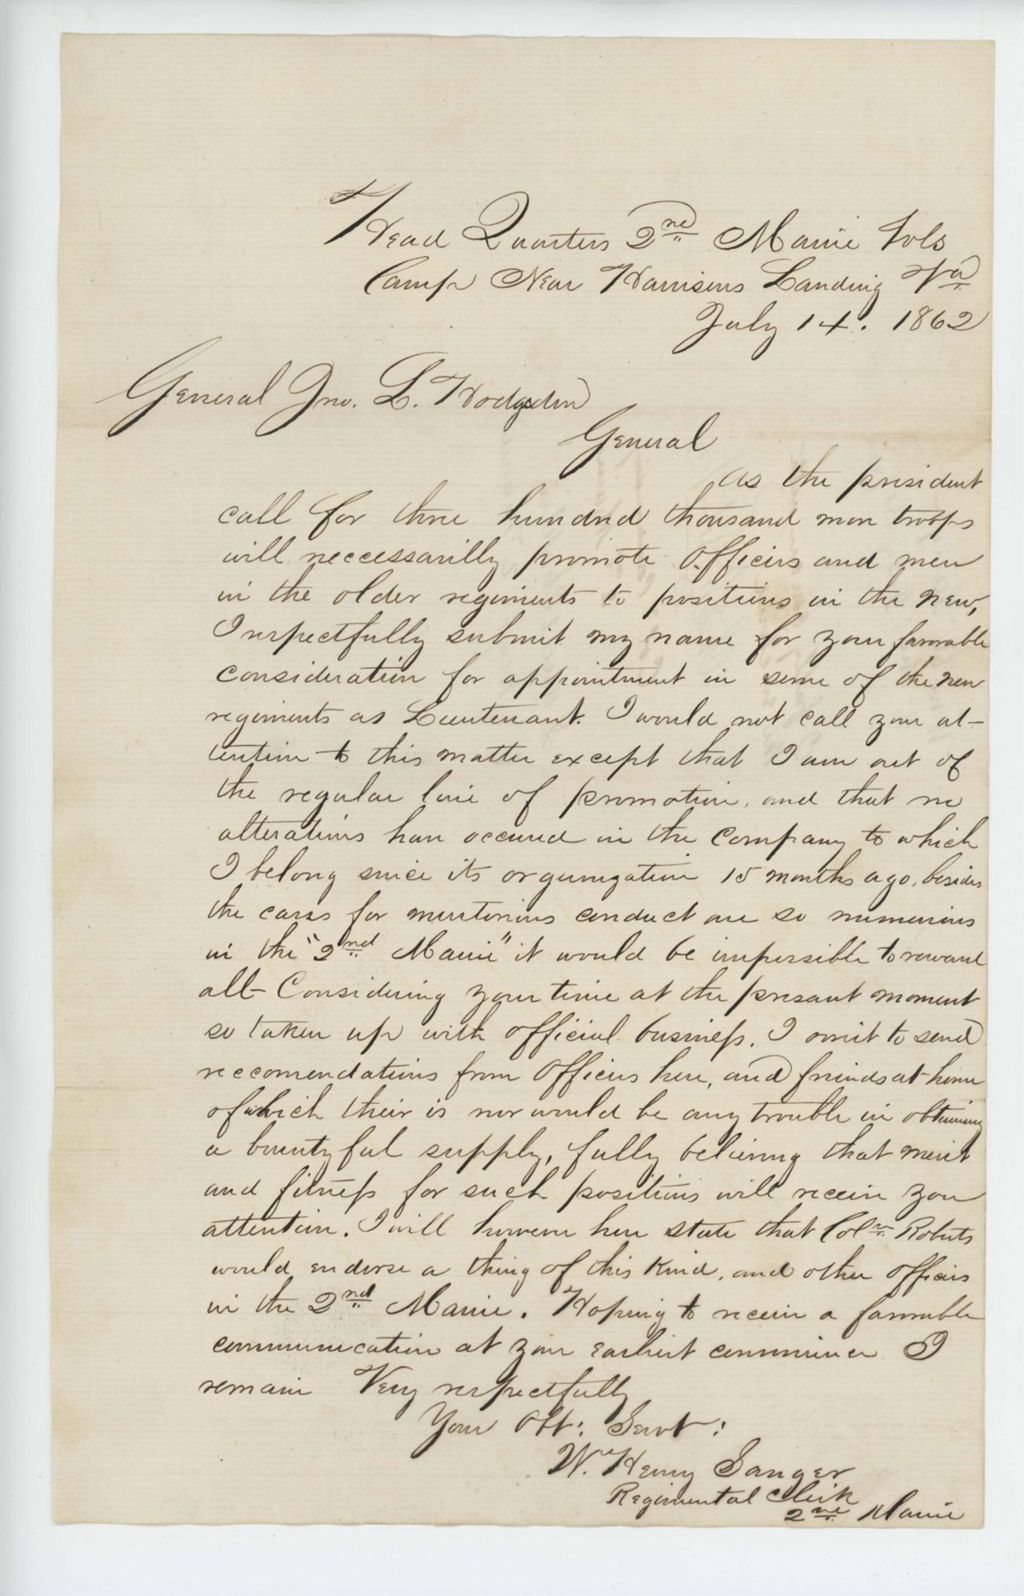 Head Quarters 2nd Maine Vols
Camp Near Harrisons Landing Va
July 14. 1862
General Jno. L. Hodgsdon
General
As the president
call for three hundred thousand more troops
will neccessarilly promote officers and men
in the older regiments to positions in the new,
I respectfully submit my name for your favorable
consideration for appointment in some of the new
regiments as Lieutenant. I would not call your at-
tention to this matter except that I am out of
the regular line of promotion, and that no
alterations have occured in the Company to which
I belong since its organization 15 months ago, besides
the cases for meritorious conduct are so numerious
in the "2nd Maine" it would be impossible to reward
all- Considering your time at the presant moment
so taken up with official business, I omit to send
reccomendations from officers here, and friends at home
of which their is nor would be any trouble in obtaining
a bountyful supply, fully believing that merit
and fitness for such positions will receive your
attention. I will however here state that Coln Roberts
would endorse a thing of this kind, and other officers
in the 2nd Maine. Hoping to receive a favorable
communication at your earliest convenience I
remain Very respectfully
Your Obt: Servt:
Wm Henry Sanger
Regimental Clerk
2nd Maine